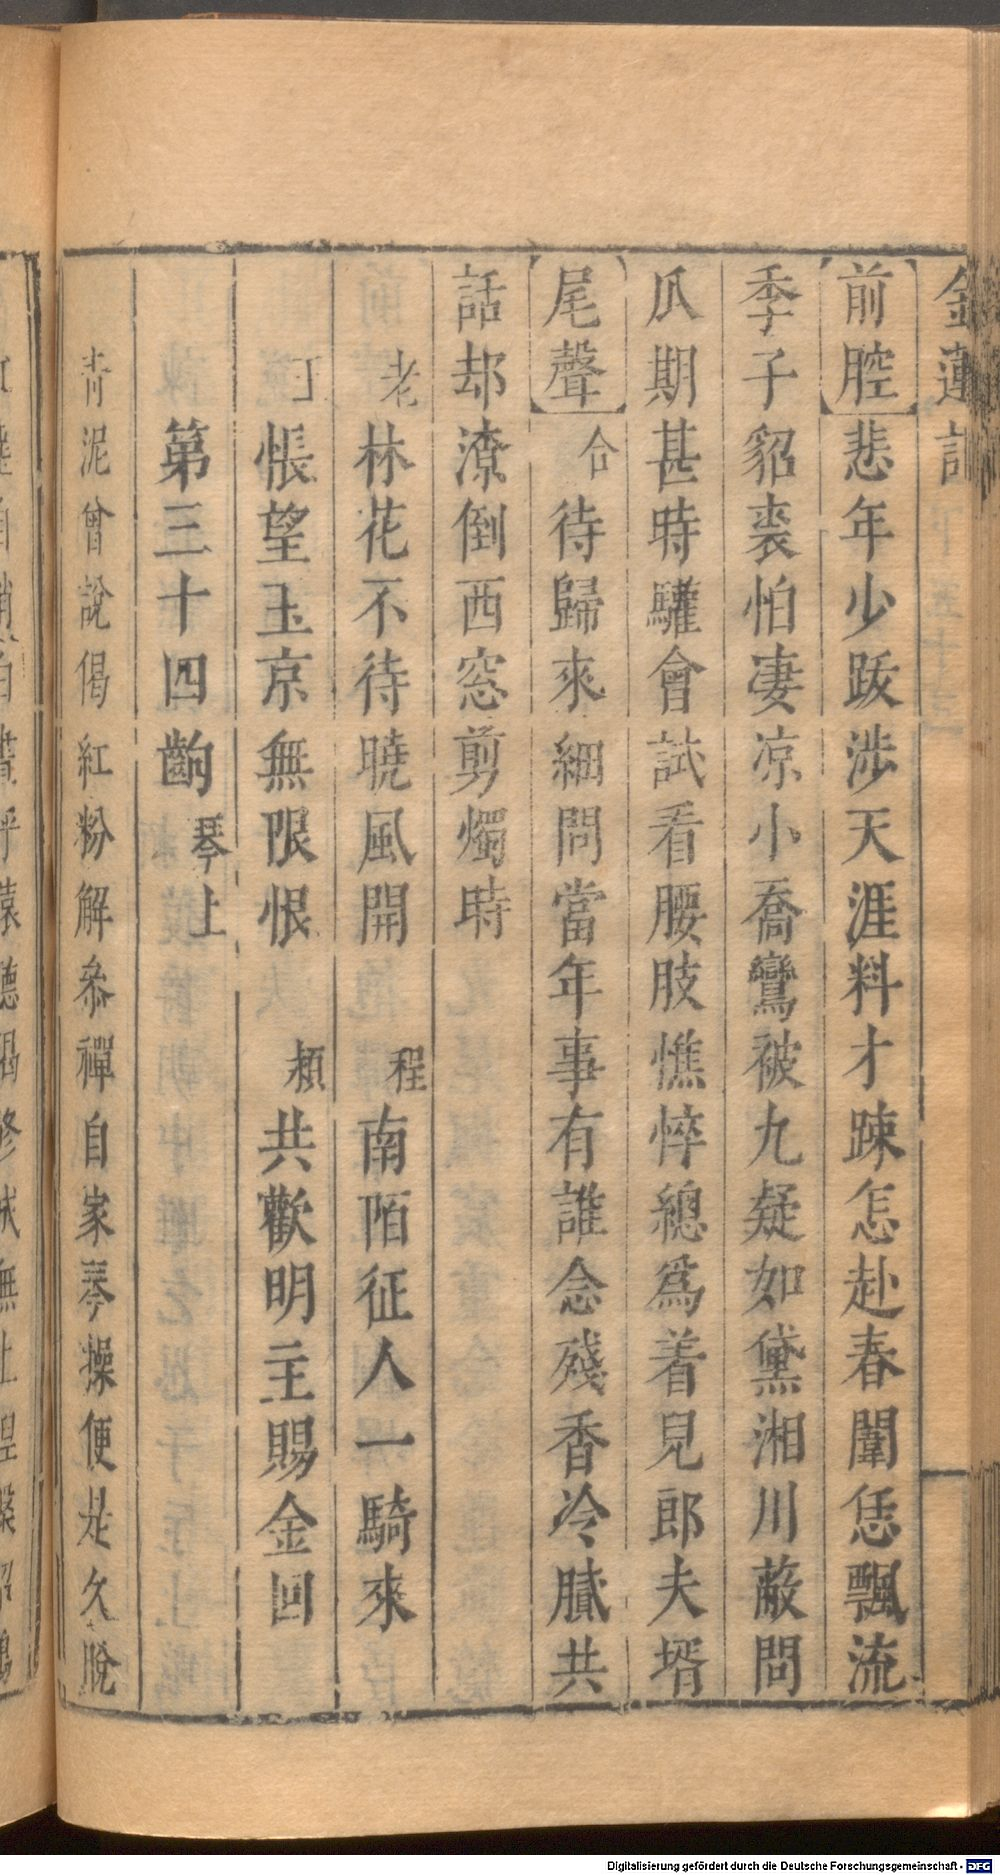 金蓮記
【前腔】悲年少跋涉天涯料才踈怎赴春闈恁飄流
季子貂裘怕凄凉小喬鸞被九疑如黛湘川蔽問
瓜期甚時驩會試看腰肢憔悴總爲着兒郎夫壻
【尾聲】合待歸來細問當年事有誰念殘香冷膩共
話却潦倒西窓剪燭時
老林花不待曉風開　程南陌征人一騎來
丁悵望玉京無限恨　頺共歡明主賜金回
第三十四齣　琴上
青泥曾說偈紅粉解叅禪自家琴操便是久脫
Digitalisierung gefördert durch die Deutsche Forschungsgemeinschaft - DFG